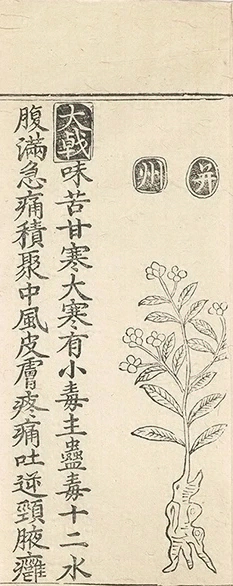 并州
大戟味苦甘寒大寒有小毒主蠱毒十二水
腹滿急痛積聚中風皮膚疼痛吐逆頸腋癰